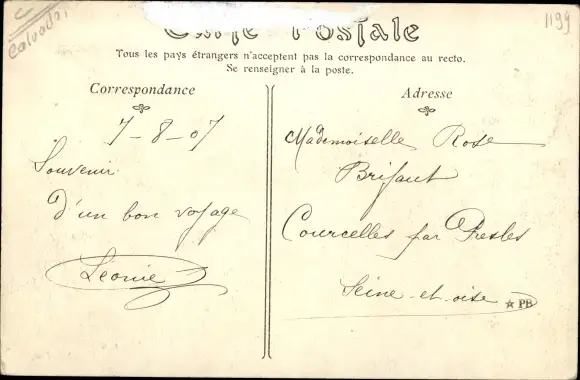 C
Calvados
1199
Carte Postale
Tous les pays étrangers n'acceptent pas la correspondance au recto.
Se renseigner à la poste.
Correspondance
7-8-07
Souvenir
d'un bon voyage
Léonie
Adresse
Mademoiselle Rose
Brifaut
Courcelles par Presles
Seine-et-oise
★ PB